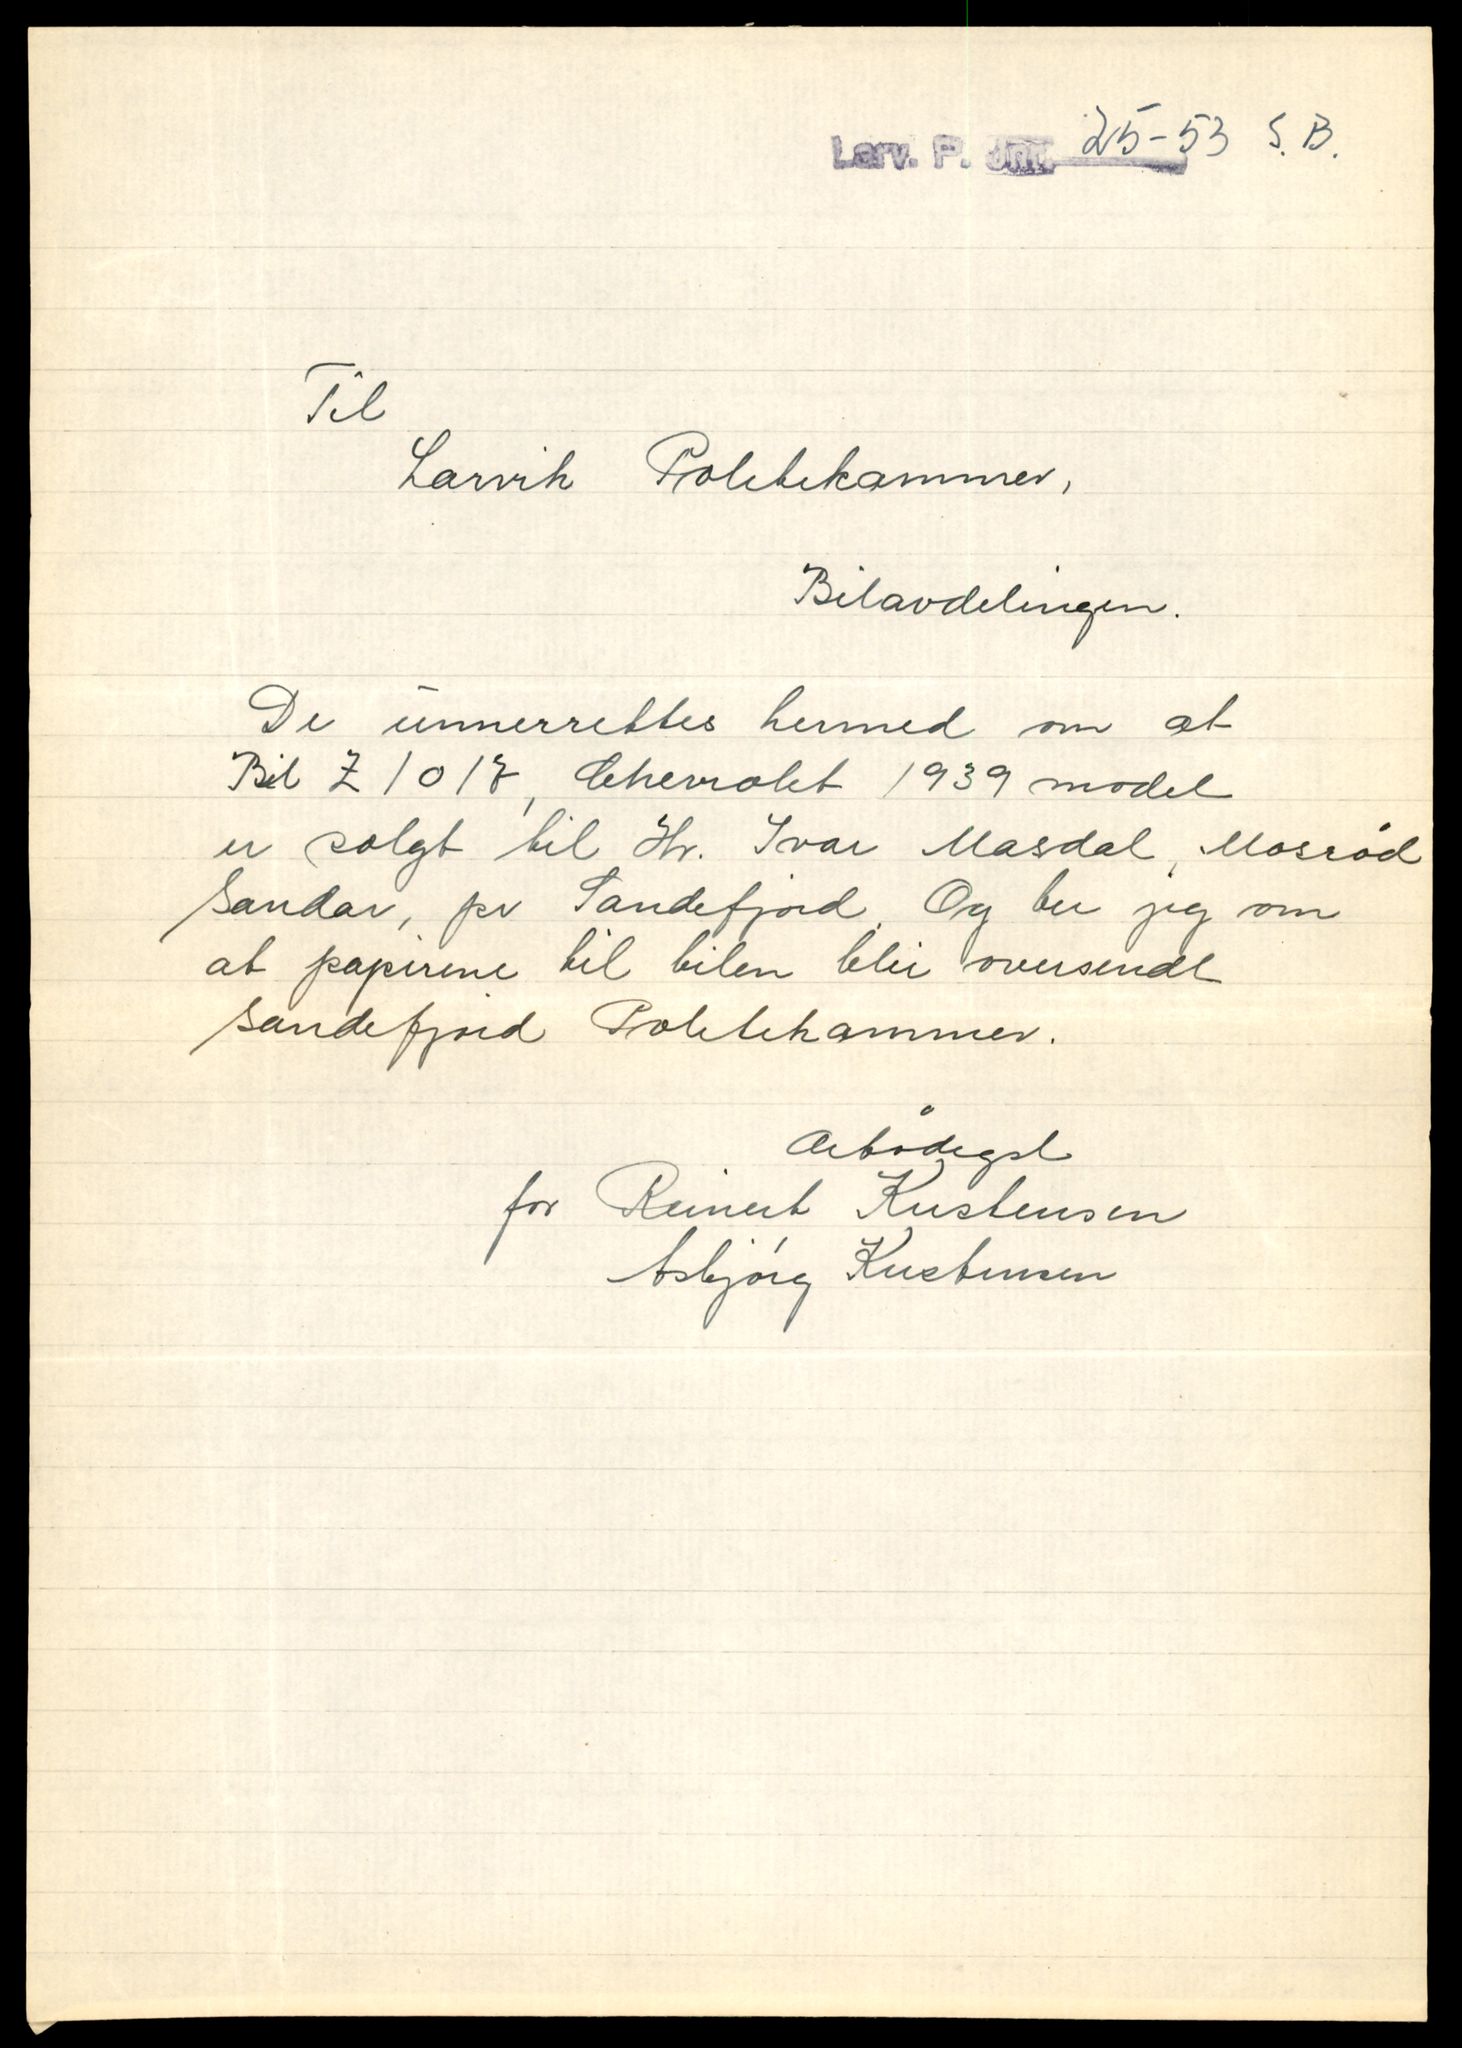 Larv. P. Jnr. 25-53 S. B.
Til
Larvik Politikammer,
Bilavdelingen.
De unnerrettes hermed om at
Bil Z 1017, Chevrolet 1939 model
er solgt til Hr. Ivar Masdal, Mosrød
Sandar, pr Sandefjord. Og ber jeg om
at papirene til bilen blir oversendt
Sandefjord Politikammer.
Ærbødigst
for Reinert Kristensen
Asbjørg Kristensen